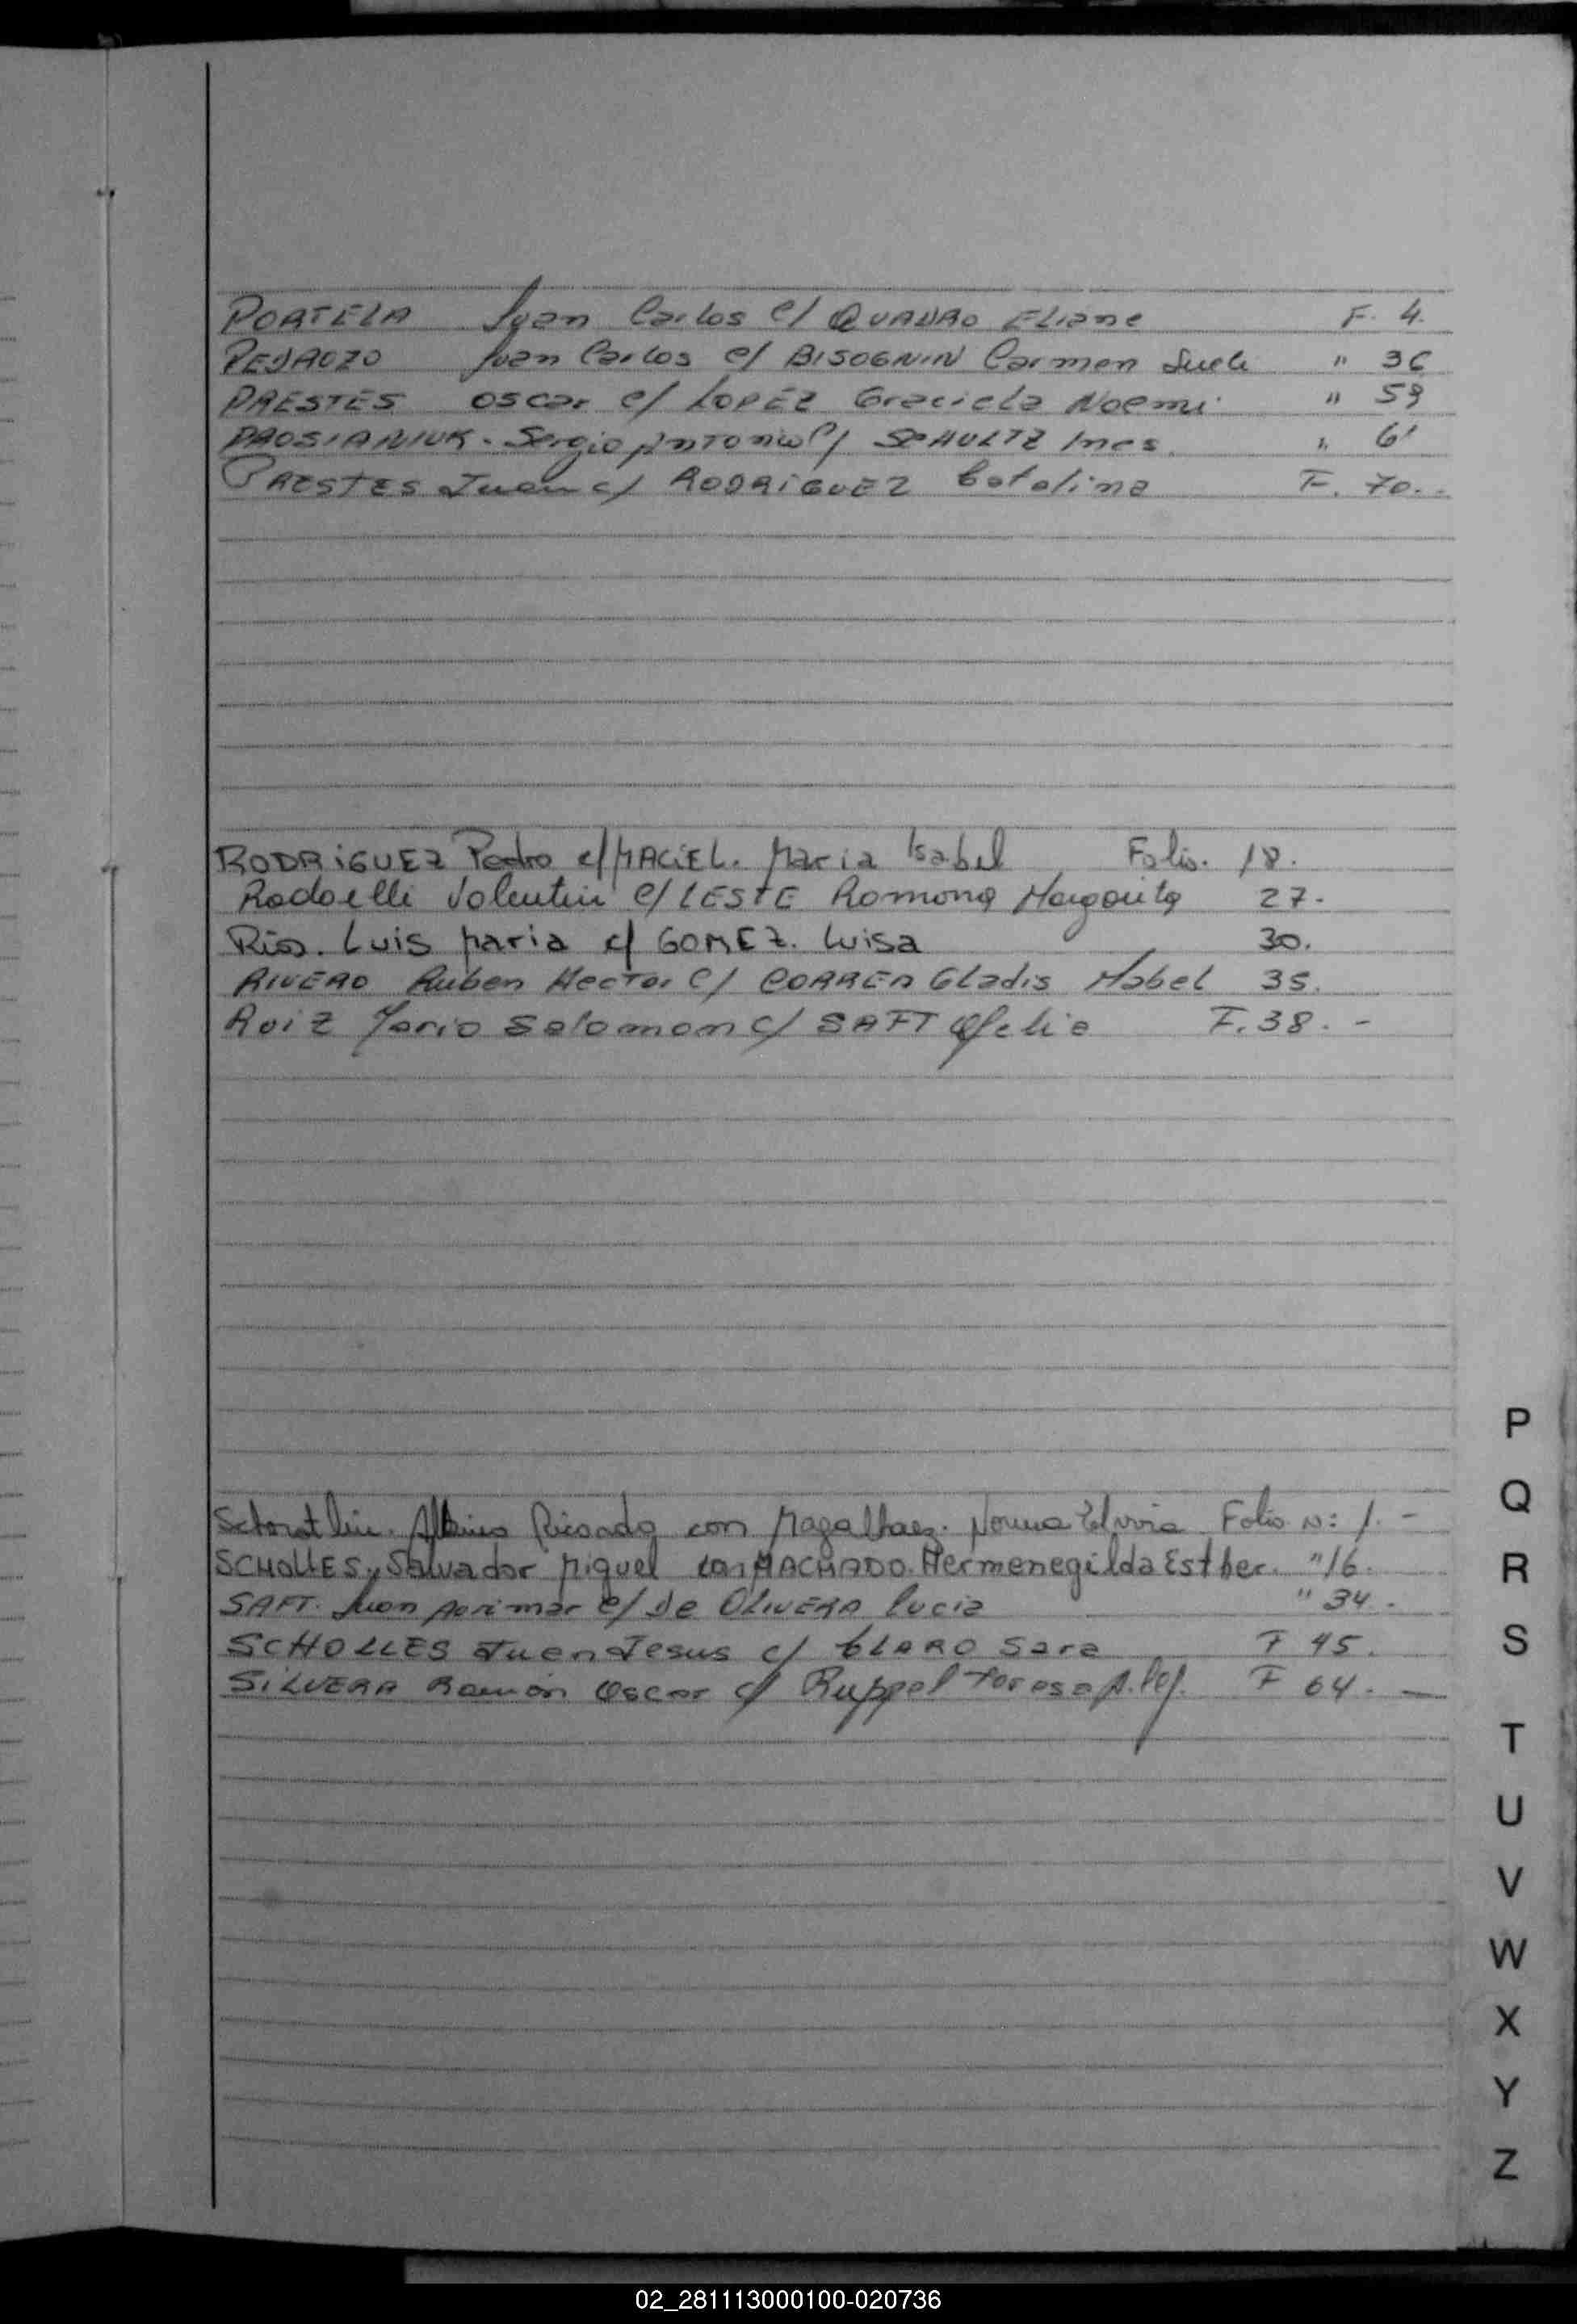 PORTELA Juan Carlos c/ QUADRO Eliane F. 4.
PEDROZO Juan Carlos c/ BISOGNIN Carmen Sueli " 36
PRESTES Oscar c/ LOPEZ Graciela Noemi " 59
PROSIANIUK. Sergio Antonio c/ SCHULTZ Ines. " 61
PRESTES Juan c/ RODRIGUEZ Catalina F. 70.-
RODRIGUEZ Pedro c/ MACIEL. Maria Isabel Folio. 18.
Radaelli Valentin c/ LESTE Romona Margarita 27.
Rios. Luis Maria c/ GOMEZ. Luisa 30.
RIVERO Ruben Hector c/ CORREA Gladis Mabel 35.
Ruiz Mario Salomon c/ SAFT Ofelia F. 38. -
Albino Ricardo con Magalhaez. Norma Elvira Folio N: 1. -
SCHOLLES, Salvador Miguel con MACHADO. Hermenegilda Esther. " 16.
SAFT. Juan c/ De OLIVERA Lucia " 34.
SCHOLLES Juan Jesus c/ CLARO Sara F 45.
SILVERA Ramón Oscar c/ Ruppel Teresa F 64. -
P
Q
R
S
T
U
V
W
X
Y
Z
02_281113000100-020736